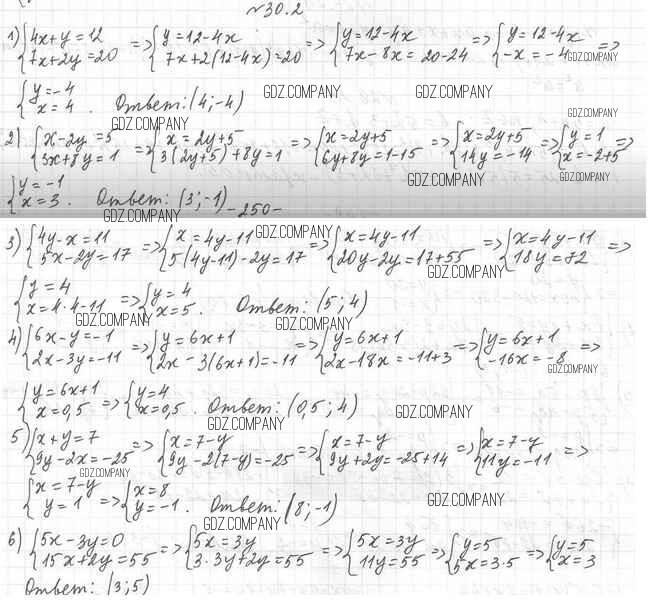 №30.2
1) {4x+y=12 7x+2y=20 => {y=12-4x 7x+2(12-4x)=20 => {y=12-4x 7x-8x=20-24 => {y=12-4x -x=-4 =>
GDZ.COMPANY
{y=-4 x=4. Ответ: (4;-4)
GDZ.COMPANY GDZ.COMPANY GDZ.COMPANY
GDZ.COMPANY
2) {x-2y=5 3x+8y=1 => {x=2y+5 3(2y+5)+8y=1 => {x=2y+5 6y+8y=1-15 => {x=2y+5 14y=-14 => {y=1 x=-2+5 =>
GDZ.COMPANY GDZ.COMPANY
{y=-1 x=3. Ответ: (3;-1)
GDZ.COMPANY
-250-
GDZ.COMPANY
3) {4y-x=11 5x-2y=17 => {x=4y-11 5(4y-11)-2y=17 => {x=4y-11 20y-2y=17+55 => {x=4y-11 18y=72 =>
GDZ.COMPANY
{y=4 x=4·4-11 => {y=4 x=5. Ответ: (5;4)
GDZ.COMPANY GDZ.COMPANY
4) {6x-y=-1 2x-3y=-11 => {y=6x+1 2x-3(6x+1)=-11 => {y=6x+1 2x-18x=-11+3 => {y=6x+1 -16x=-8 =>
GDZ.COMPANY
{y=6x+1 x=0,5 => {y=4 x=0,5. Ответ: (0,5;4)
GDZ.COMPANY GDZ.COMPANY
5) {x+y=7 9y-2x=-25 => {x=7-y 9y-2(7-y)=-25 => {x=7-y 9y+2y=-25+14 => {x=7-y 11y=-11 =>
GDZ.COMPANY
{x=7-y y=1 => {x=8 y=-1. Ответ: (8;-1)
GDZ.COMPANY GDZ.COMPANY
6) {5x-3y=0 15x+2y=55 => {5x=3y 3·3y+2y=55 => {5x=3y 11y=55 => {y=5 5x=3·5 => {y=5 x=3
Ответ: (3;5)